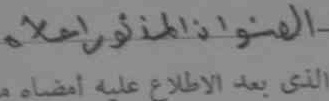 العنوان المذكور اعلاه
الذي بعد الاطلاع عليه أمضاه م